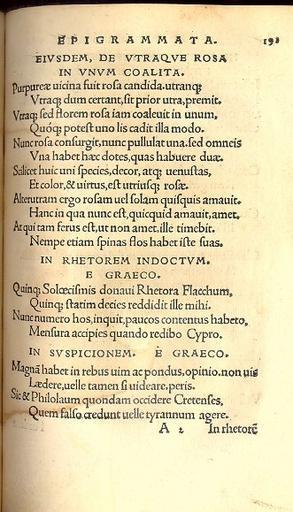 EPIGRAMMATA. 193
EIVSDEM, DE VTRAQVE ROSA
IN VNVM COALITA.
Purpureæ uicina fuit rosa candida. utranq;
Vtraq; dum certant, sit prior utra, premit.
Vtraq; sed florem rosa iam coaleuit in unum,
Quoq; potest uno lis cadit illa modo.
Nunc rosa consurgit, nunc pullulat una. sed omneis
Vna habet hæc dotes, quas habuere duæ.
Scilicet huic uni species, decor, atq; uenustas,
Et color, & uirtus, est utriusq; rosæ.
Alterutram ergo rosam uel solam quisquis amauit.
Hanc in qua nunc est, quicquid amauit, amet.
At qui tam ferus est, ut non amet, ille timebit.
Nempe etiam spinas flos habet iste suas.
IN RHETOREM INDOCTVM.
E GRAECO.
Quinq; Solœcismis donaui Rhetora Flaccum,
Quinq; statim decies reddidit ille mihi.
Nunc numero hos, inquit, paucos contentus habeto,
Mensura accipies quando redibo Cypro.
IN SVSPICIONEM. E GRAECO.
Magnā habet in rebus uim ac pondus, opinio. non uis
Lædere, uelle tamen si uideare, peris.
Sic & Philolaum quondam occidere Cretenses,
Quem falso credunt uelle tyrannum agere.
A 2 In rhetorē